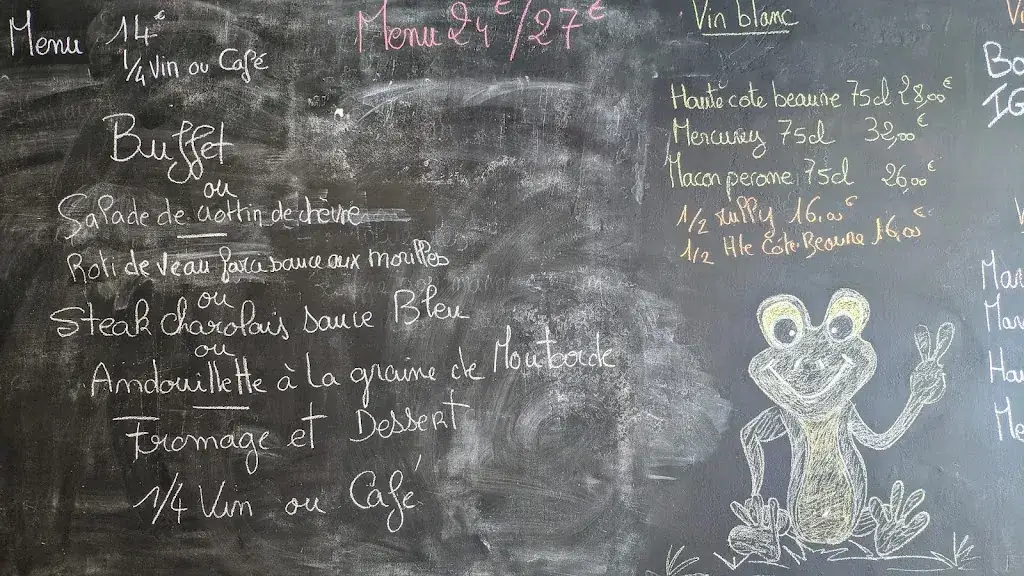 Menu 14€
1/4 Vin ou Café
Buffet
ou
Salade de crottin de chèvre
Roti de veau farci sauce aux morilles
ou
Steak charolais sauce Bleu
ou
Andouillette à la graine de Moutarde
Fromage et Dessert
1/4 Vin ou Café
Menu 24€/27€
Vin blanc
Haute cote beaune 75cl 28,00€
Mercurey 75cl 32,00€
Macon perone 75cl 26,00€
1/2 rully 16,00€
1/2 Hte Côte Beaune 16,00€
Vi
Bo
IG
V
Mar
Mar
Hau
Me